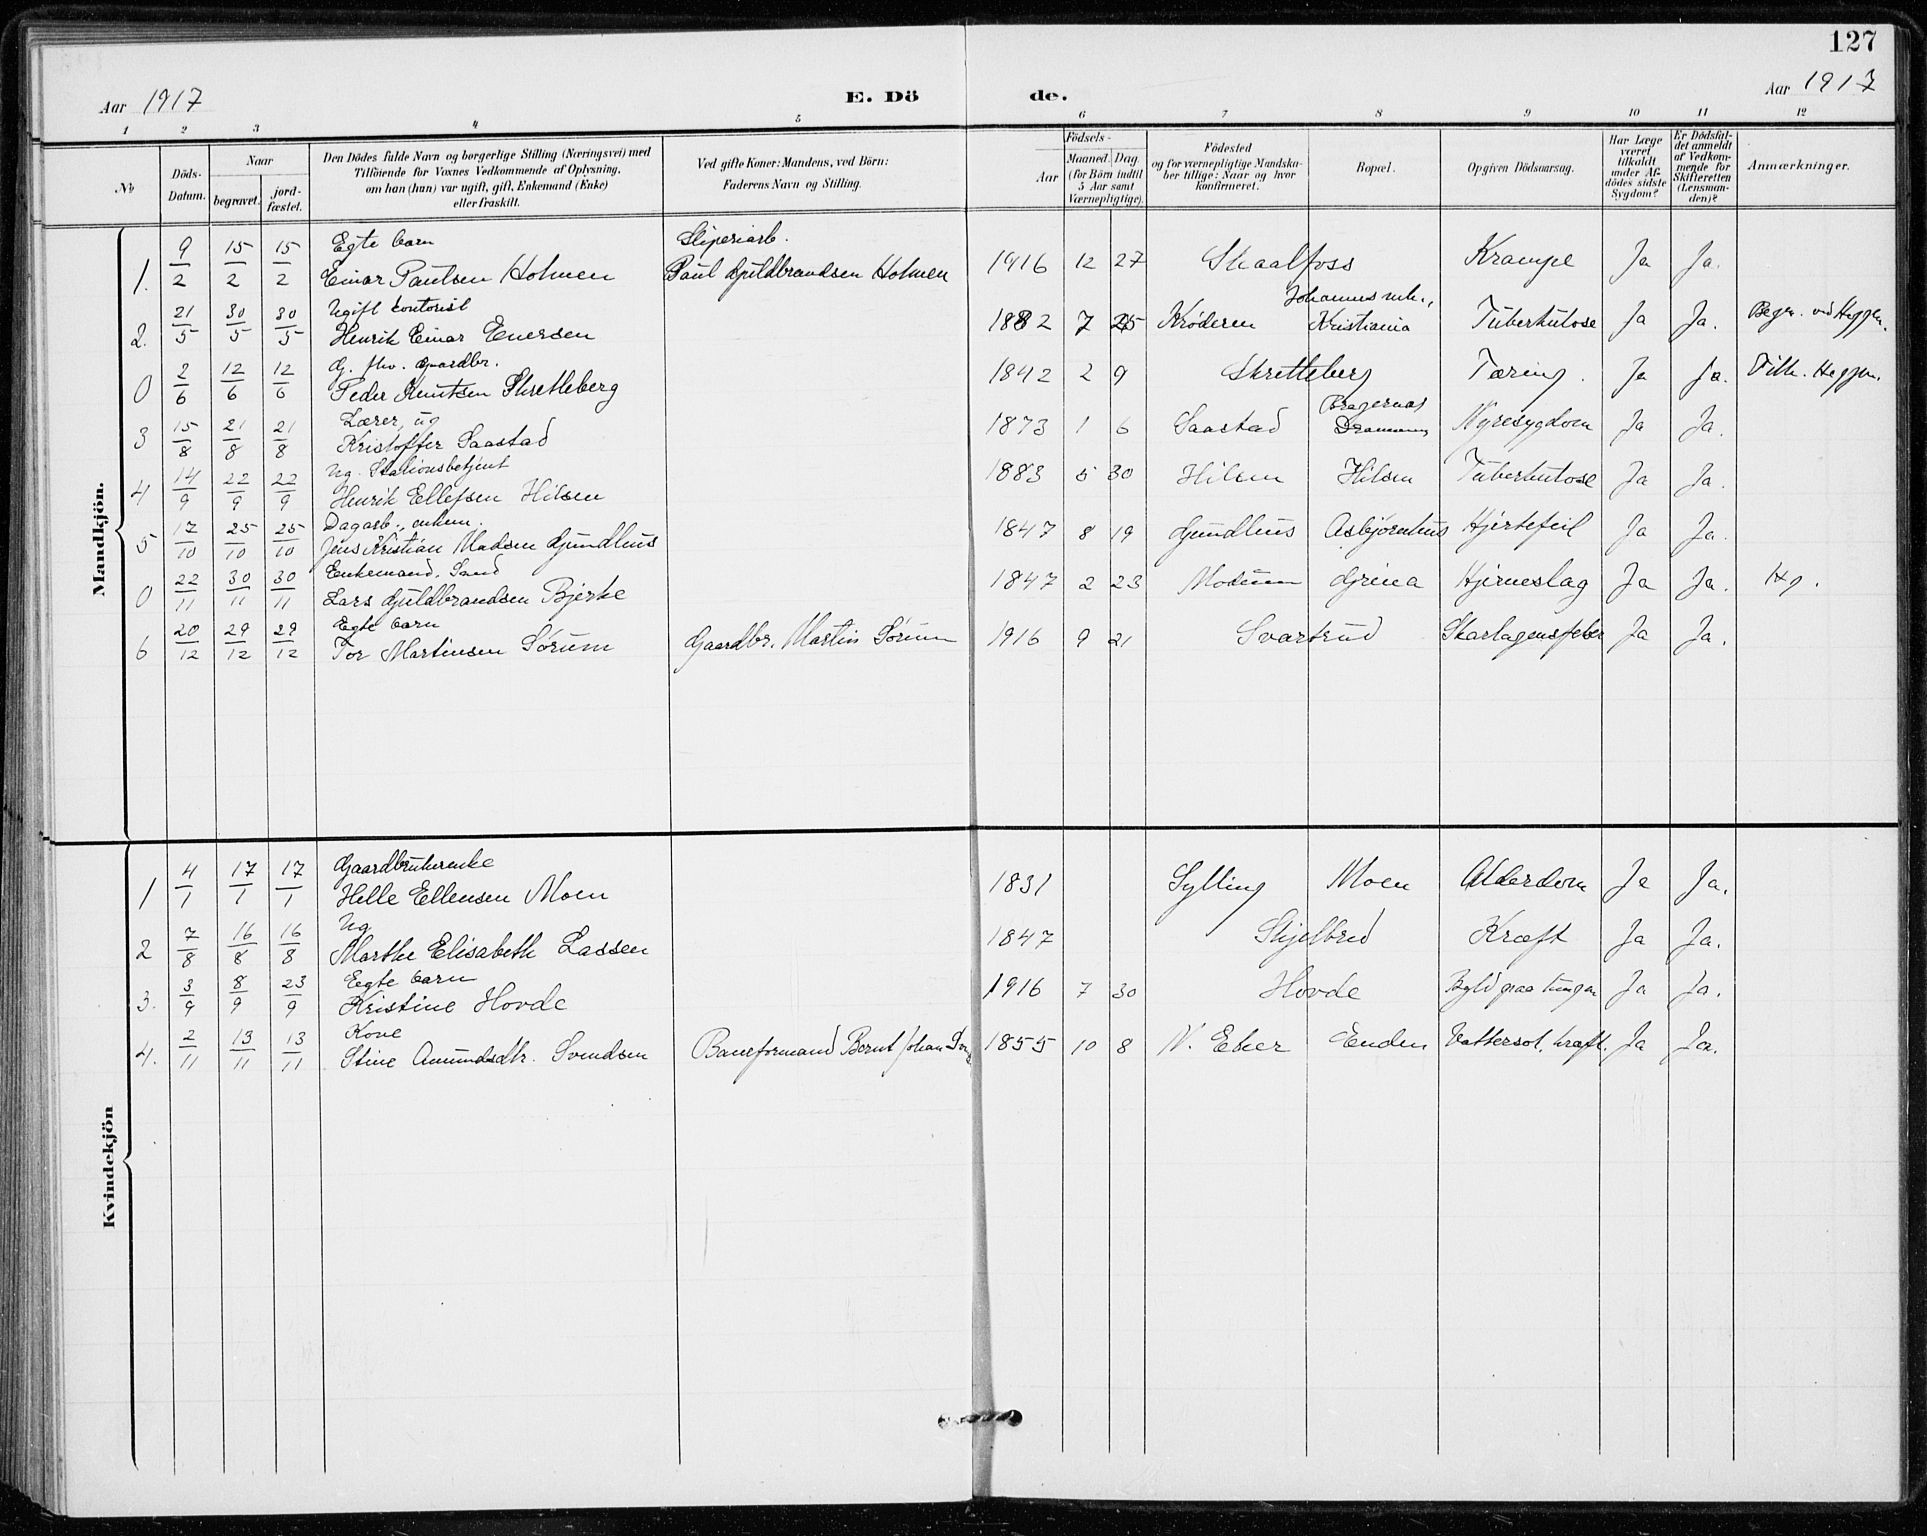 127
Aar 1917 E. Dö de. Aar 1917
1 2 3 4 5 6 7 8 9 10 11 12
№
Döds-Datum.
Naar
begravet.
jord-fæstet.
Den Dödes fulde Navn og borgerlige Stilling (Næringsvei) med
Tilföiende for Voxnes Vedkommende af Oplysning,
om han (hun) var ugift, gift, Enkemand (Enke)
eller fraskilt.
Ved gifte Koner: Mandens, ved Börn:
Faderens Navn og Stilling.
Födsels-
Aar
Maaned. Dag.
(for Börn indtil
5 Aar samt
Værnepligtige).
Födested
og for værnepligtige Mandska-
ber tillige: Naar og hvor
konfirmeret.
Bopæl.
Opgiven Dödsaarsag.
Har Læge
været
tilkaldt
under Af-
dödes sidste
Sygdom?
Er Dödsfal-
det anmeldt
af Vedkom-
mende for
Skifteretten
(Lensman-
den)?
Anmærkninger.
Mandkjön.
Egte barn Sliperiarb.
1. 9/2 15/2 15/2 Einar Paulsen Holmen Paul Guldbrandsen Holmen 1916 12 27 Skaalfoss Krampe Ja Ja.
Ugift kontorist Johannes mh.,
2. 21/5 30/5 30/5 Henrik Einar Enersen 1882 7 25 Krøderen Kristiania Tuberkulose Ja Ja. Begr. ved Heggen.
G. fhv. Gaardbr.
0 2/6 12/6 12/6 Peder Knutsen Skretteberg 1842 2 9 Skretteberg Tæring. Ja Ja. Tilh. Heggen.
Lærer, ug Bragernas
3 15/8 21/8 21/8 Kristoffer Saastad 1873 1 6 Saastad Drammen Nyresygdom Ja Ja.
Ug. Stationsbetjent
4 14/9 22/9 22/9 Henrik Ellefsen Hilsen 1883 5 30 Hilsen Hilsen Tuberkulose Ja Ja.
Dagarb., enkem.
5 17/10 25/10 25/10 Jens Kristian Madsen Gundhus 1847 8 19 Gundhus Asbjørnhus Hjertefeil Ja Ja.
Enkemand. Sand
0 22/11 30/11 30/11 Lars Guldbrandsen Bjerke 1847 2 23 Modum Grina Hjerneslag Ja Ja. Hg.
Egte barn
6 20/12 29/12 29/12 Tor Martinsen Sørum Gaardbr. Martin Sørum 1916 9 21 Svartrud Skarlagensfeber Ja Ja.
Kvindekjön
Gaardbrukerenke
1 4/1 17/1 17/1 Helle Ellensen Moen 1831 Sylling Moen Alderdom Ja Ja.
Ug
2 7/8 16/8 16/8 Marthe Elisabeth Lassen 1847 Skjelbred Kræft Ja Ja.
Egte barn
3. 3/9 8/9 23/9 Kristine Hovde 1916 7 30 Hovde Byld paa lungen Ja Ja.
Kone
4. 2/11 13/11 13/11 Stine Amundsdtr. Svendsen Baneformand Bernt Johan 1855 10 8 N. Eker Enden Vattersot, kræft. Ja Ja.